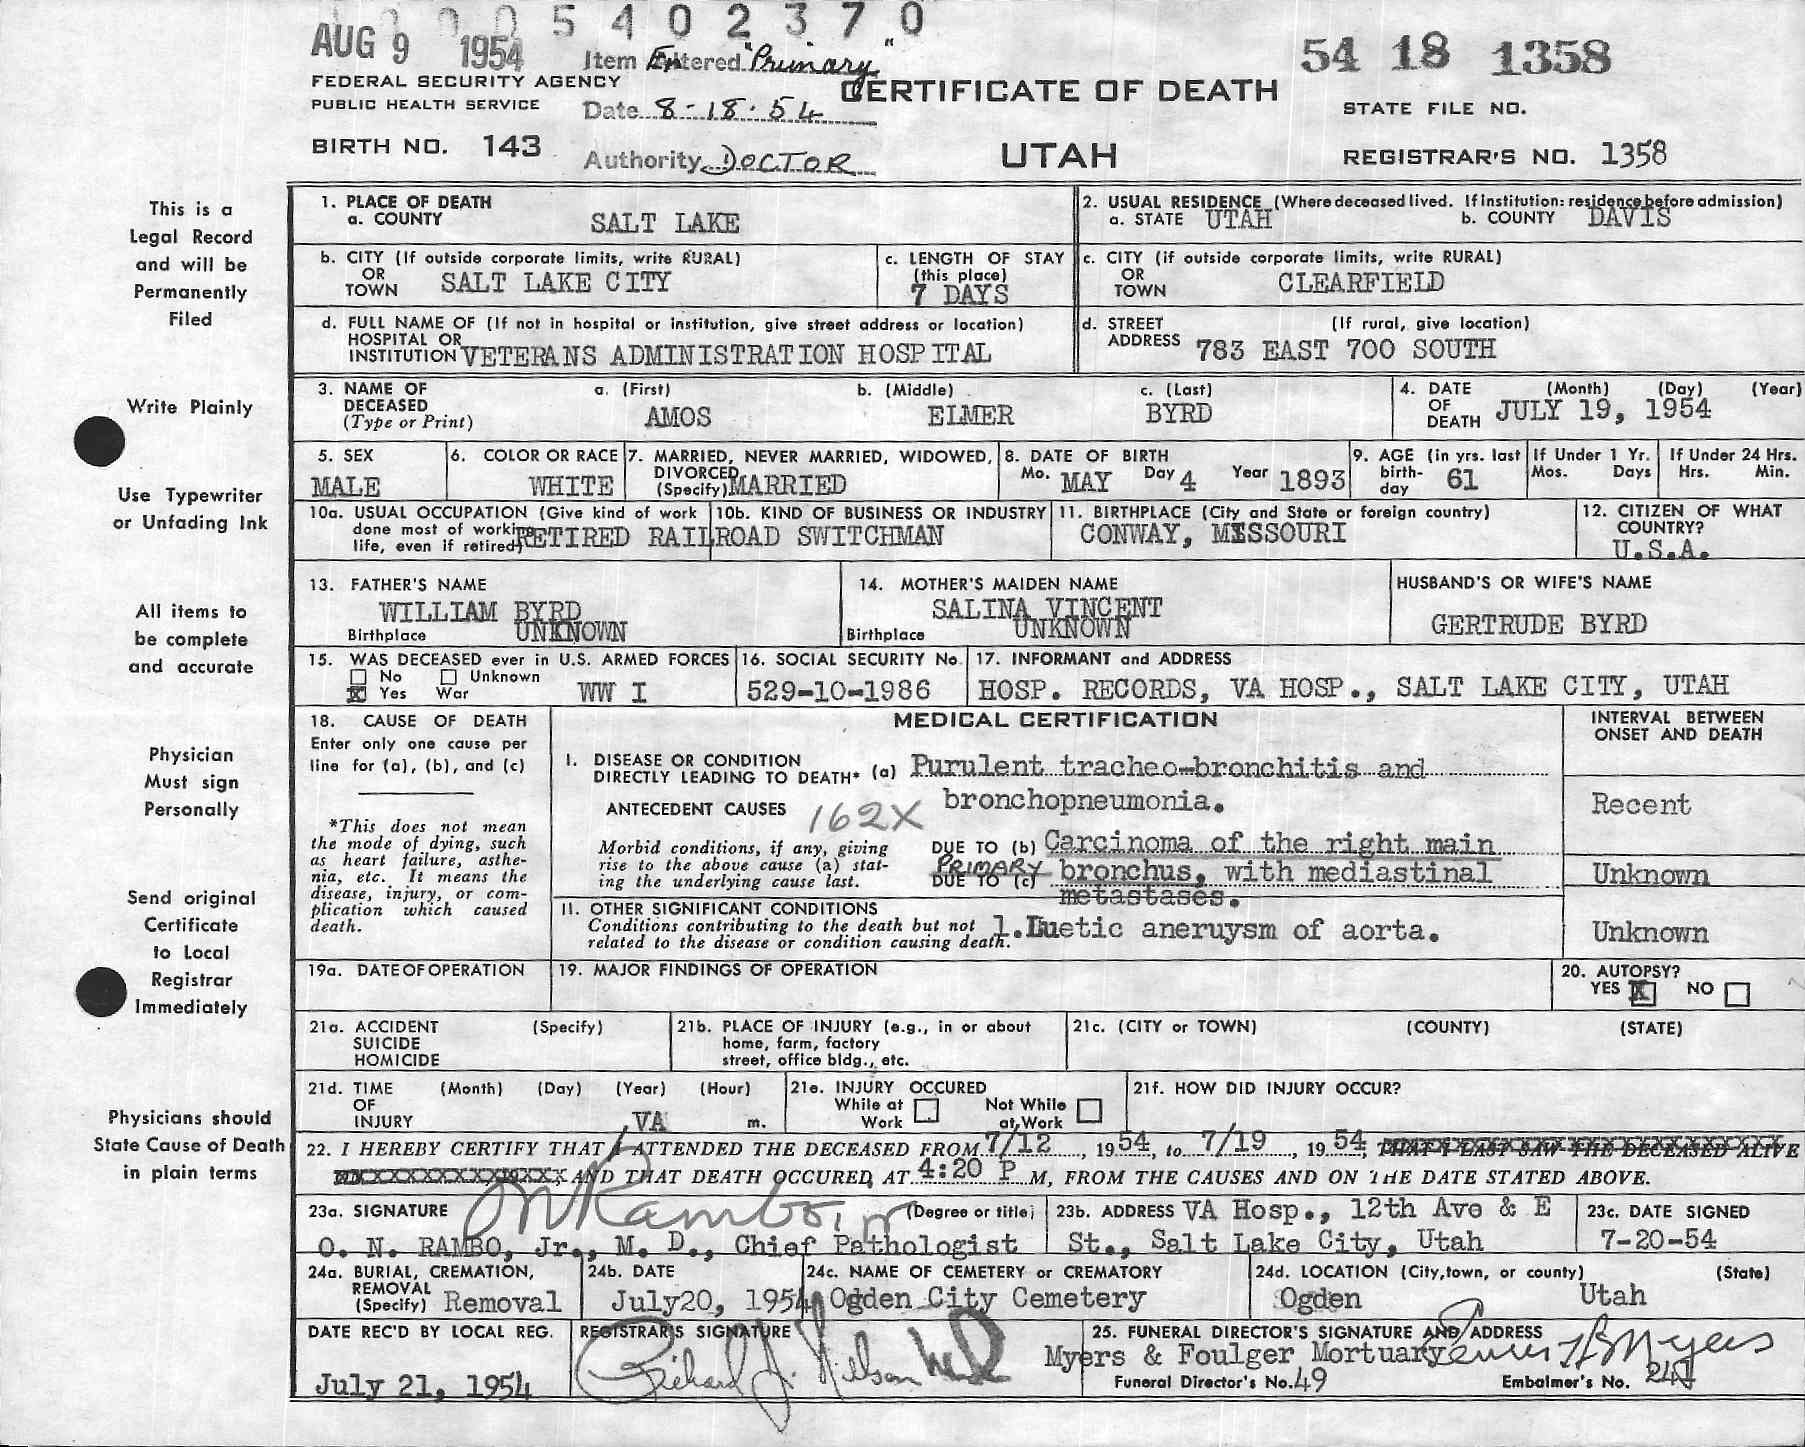 0 0 0 5 4 0 2 3 7 0
AUG 9 1954
Item Entered "Primary"
54 18 1358
FEDERAL SECURITY AGENCY
PUBLIC HEALTH SERVICE
Date 8-18-54
CERTIFICATE OF DEATH
STATE FILE NO.
BIRTH NO. 143
Authority DOCTOR
UTAH
REGISTRAR'S NO. 1358
This is a
Legal Record
and will be
Permanently
Filed
Write Plainly
Use Typewriter
or Unfading Ink
All items to
be complete
and accurate
Physician
Must sign
Personally
Send original
Certificate
to Local
Registrar
Immediately
Physicians should
State Cause of Death
in plain terms
1. PLACE OF DEATH
a. COUNTY SALT LAKE
2. USUAL RESIDENCE (Where deceased lived. If institution: residence before admission)
a. STATE UTAH b. COUNTY DAVIS
b. CITY (If outside corporate limits, write RURAL)
OR
TOWN SALT LAKE CITY
c. LENGTH OF STAY
(this place)
7 DAYS
c. CITY (if outside corporate limits, write RURAL)
OR
TOWN CLEARFIELD
d. FULL NAME OF (If not in hospital or institution, give street address or location)
HOSPITAL OR
INSTITUTION VETERANS ADMINISTRATION HOSPITAL
d. STREET (If rural, give location)
ADDRESS 783 EAST 700 SOUTH
3. NAME OF DECEASED (Type or Print)
a. (First) b. (Middle) c. (Last)
AMOS EIMER BYRD
4. DATE OF DEATH (Month) (Day) (Year)
JULY 19, 1954
5. SEX
MALE
6. COLOR OR RACE
WHITE
7. MARRIED, NEVER MARRIED, WIDOWED,
DIVORCED
(Specify) MARRIED
8. DATE OF BIRTH
Mo. MAY Day 4 Year 1893
9. AGE (in yrs. last
birth-
day 61
If Under 1 Yr.
Mos. Days
If Under 24 Hrs.
Hrs. Min.
10a. USUAL OCCUPATION (Give kind of work
done most of working
life, even if retired)
10b. KIND OF BUSINESS OR INDUSTRY
RETIRED RAILROAD SWITCHMAN
11. BIRTHPLACE (City and State or foreign country)
CONWAY, MISSOURI
12. CITIZEN OF WHAT
COUNTRY?
U.S.A.
13. FATHER'S NAME
WILLIAM BYRD
Birthplace UNKNOWN
14. MOTHER'S MAIDEN NAME
SALINA VINCENT
Birthplace UNKNOWN
HUSBAND'S OR WIFE'S NAME
GERTRUDE BYRD
15. WAS DECEASED ever in U.S. ARMED FORCES
No Unknown
X Yes War WW I
16. SOCIAL SECURITY No.
529-10-1986
17. INFORMANT and ADDRESS
HOSP. RECORDS, VA HOSP., SALT LAKE CITY, UTAH
18. CAUSE OF DEATH
Enter only one cause per
line for (a), (b), and (c)
*This does not mean
the mode of dying, such
as heart failure, asthe-
nia, etc. It means the
disease, injury, or com-
plication which caused
death.
MEDICAL CERTIFICATION
INTERVAL BETWEEN
ONSET AND DEATH
I. DISEASE OR CONDITION
DIRECTLY LEADING TO DEATH* (a) Purulent tracheo-bronchitis and
bronchopneumonia.
Recent
ANTECEDENT CAUSES 162X
Morbid conditions, if any, giving
rise to the above cause (a) stat-
ing the underlying cause last.
DUE TO (b) Carcinoma of the right main
PRIMARY
DUE TO (c) bronchus, with mediastinal
metastases.
Unknown
II. OTHER SIGNIFICANT CONDITIONS
Conditions contributing to the death but not
related to the disease or condition causing death.
1. Luetic aneruysm of aorta.
Unknown
19a. DATE OF OPERATION
19. MAJOR FINDINGS OF OPERATION
20. AUTOPSY?
YES X NO
21a. ACCIDENT (Specify)
SUICIDE
HOMICIDE
21b. PLACE OF INJURY (e.g., in or about
home, farm, factory
street, office bldg., etc.
21c. (CITY or TOWN) (COUNTY) (STATE)
21d. TIME (Month) (Day) (Year) (Hour)
OF
INJURY m.
21e. INJURY OCCURED
While at Work
Not While at Work
21f. HOW DID INJURY OCCUR?
VA
22. I HEREBY CERTIFY THAT I ATTENDED THE DECEASED FROM 7/12, 1954, to 7/19, 1954, THAT I LAST SAW THE DECEASED ALIVE
AND THAT DEATH OCCURED AT 4:20 P M, FROM THE CAUSES AND ON THE DATE STATED ABOVE.
23a. SIGNATURE ON Rambo, Jr (Degree or title)
O. N. RAMBO, Jr., M. D., Chief Pathologist
23b. ADDRESS VA Hosp., 12th Ave & E
St., Salt Lake City, Utah
23c. DATE SIGNED
7-20-54
24a. BURIAL, CREMATION,
REMOVAL
(Specify) Removal
24b. DATE
July20, 1954
24c. NAME OF CEMETERY or CREMATORY
Ogden City Cemetery
24d. LOCATION (City, town, or county) (State)
Ogden Utah
DATE REC'D BY LOCAL REG.
July 21, 1954
REGISTRAR'S SIGNATURE
Richard J. Nelson
25. FUNERAL DIRECTOR'S SIGNATURE AND ADDRESS
Myers & Foulger Mortuary
Funeral Director's No. 49
Embalmer's No.